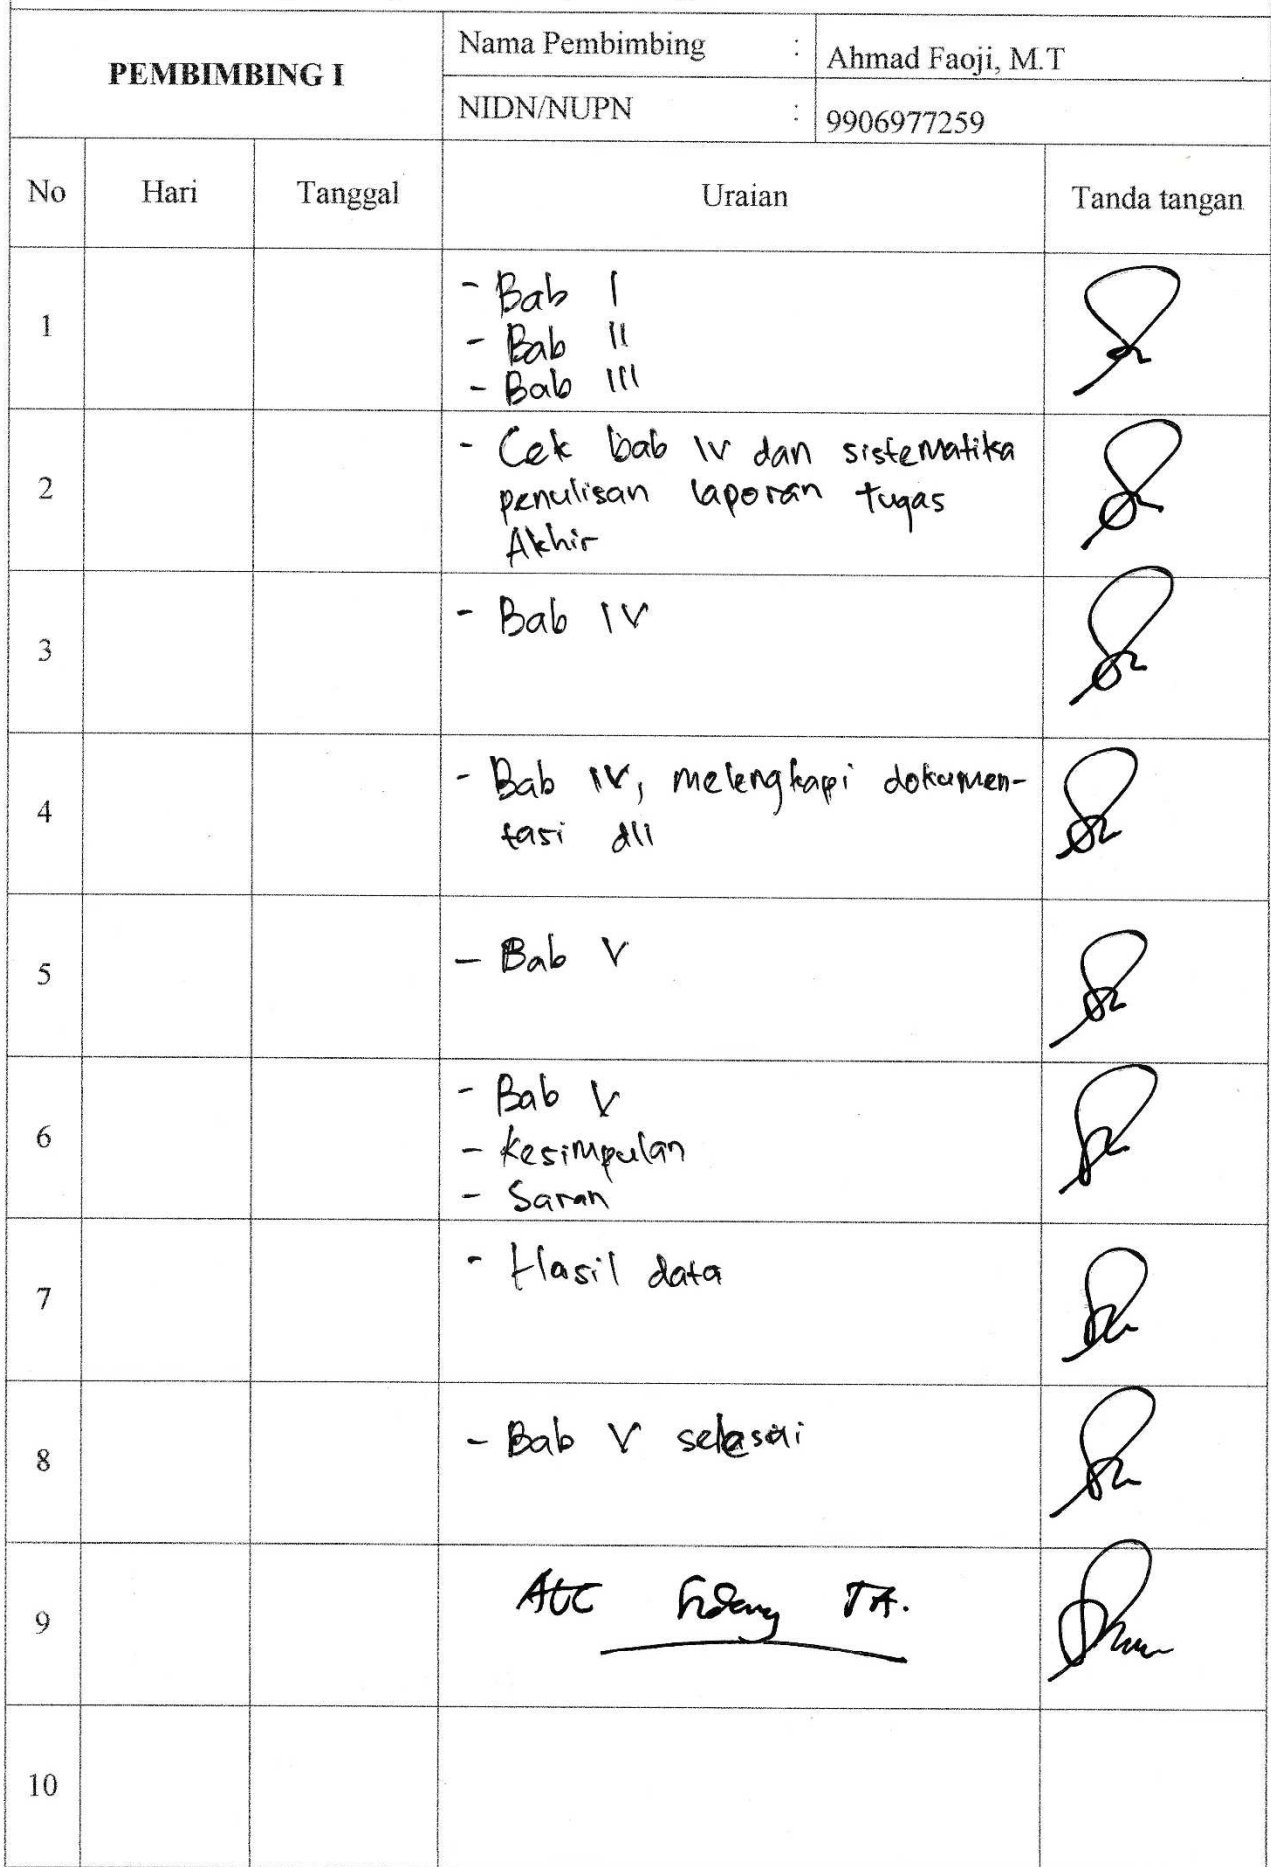 PEMBIMBING I
Nama Pembimbing : Ahmad Faoji, M.T
NIDN/NUPN : 9906977259
No Hari Tanggal Uraian Tanda tangan
1
- Bab I
- Bab II
- Bab III
2
- Cek bab IV dan sistematika
penulisan laporan tugas
Akhir
3
- Bab IV
4
- Bab IV, melengkapi dokumen-
tasi dll
5
- Bab V
6
- Bab V
- Kesimpulan
- Saran
7
- Hasil data
8
- Bab V selesai
9
ACC Sidang TA.
10